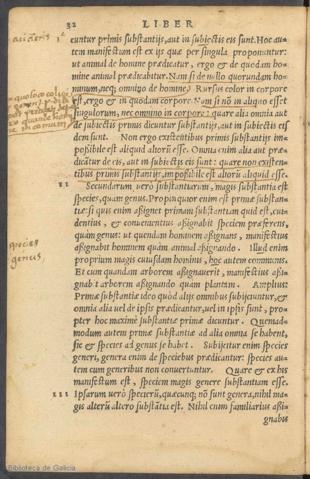 32 LIBER
cuntur primis substantijs, aut in subiectis eis sunt. Hoc au-
tem manifestum est ex ijs quæ per singula proponuntur:
ut animal de homine prædicatur, ergo & de quodam ho-
mine animal prædicabitur. Nam si de nullo quorundam ho-
minum, neq; omnino de homine. Rursus color in corpore
est, ergo & in quodam corpore. Nam si nō in aliquo esset
singulorum, nec omnino in corpore: quare alia omnia aut
de subiectis primis dicuntur substantijs, aut in subiectis eis-
dem sunt. Non ergo existentibus primis substantijs im-
possibile est aliquid aliorū esse. Omnia enim alia aut præ-
dicātur de eis, aut in subiectis eis sunt: quare non existen-
tibus primis substantijs, impossibile est aliorū aliquid esse.
II Secundarum uerò substantiarum, magis substantia est
species, quàm genus. Propinquior enim est primæ substan-
tiæ: si quis enim aßignet primam substantiam quid est, eui-
dentius, & conuenientius aßignabit speciem præferens,
quàm genus: ut quendam hominem aßignans, manifestius
aßignabit hominem quàm animal aßignando. Illud enim
proprium magis cuiusdam hominis, hoc autem communius.
Et cum quandam arborem aßignauerit, manifestius aßi-
gnabit arborem aßignando quàm plantam. Amplius:
Primæ substantiæ ideo quòd alijs omnibus subijciuntur, &
omnia alia uel de ipsis prædicantur, uel in ipsis sunt, pro-
pter hoc maximè substantiæ primæ dicuntur. Quemad-
modum autem primæ substantiæ ad alia omnia se habent,
sic & species ad genus se habet. Subijcitur enim species
generi, genera enim de speciebus prædicantur: species au-
tem cum generibus non conuertuntur. Quare & ex his
manifestum est, speciem magis genere substantiam esse.
III Ipsarum uerò specierū, quæcunq; nō sunt genera, nihil ma-
gis alterū altero substātia est. Nihil enim familiarius aßi-
gnabis
species
genus,
Biblioteca de Galicia